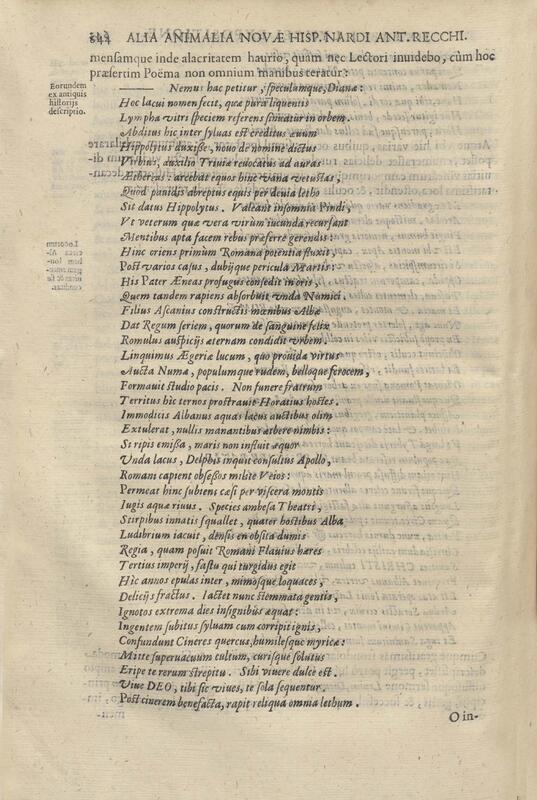 844 ALIA ANIMALIA NOVÆ HISP. NARDI ANT. RECCHI.
mensamque inde alacritatem haurio, quam nec Lectori inuidebo, cùm hoc
præsertim Poëma non omnium manibus teratur:
Eorundem
ex antiquis
historijs
descriptio.
Nemus hac petitur, speculumque, Dianæ:
Hoc lacui nomen fecit, quæ pura liquentis
Lympha vitri speciem referens sinuatur in orbem.
Abditus hic inter syluas est creditus æuum
Hippolytus auxisse, nouo de nomine dictus
Virbius, auxilio Triuiæ reuocatus ad auras
Æthereas: arcebat equos hinc vana vetustas,
Quod pauidis abreptus equis per deuia letho
Sit datus Hippolytus. Valeant insomnia Pindi,
Vt veterum quæ vera virûm iucunda recursant
Mentibus apta facem rebus præferre gerendis:
Hinc oriens primùm Romana potentia fluxit,
Post varios casus, dubijque pericula Martis:
His Pater Æneas profugus consedit in oris,
Quem tandem rapiens absorbuit vnda Numici.
Filius Ascanius constructis mœnibus Albæ
Dat Regum seriem, quorum de sanguine felix
Romulus auspicijs æternam condidit vrbem.
Linquimus Ægeriæ lucum, quo prouida virtus
Aucta Numæ, populumque rudem, belloque ferocem,
Formauit studio pacis. Non funere fratrum
Territus hic ternos prostrauit Horatius hostes.
Immodicis Albanus aquas lacus auctibus olim
Extulerat, nullis manantibus æthere nimbis:
Si ripis emissa, maris non influit æquor
Vnda lacus, Delphis inquit consultus Apollo,
Romani capient obseßos milite Veios:
Permeat hinc subiens cæsi per viscera montis
Iugis aquæ riuus. Species ambesa Theatri,
Stirpibus innatis squallet, quater hostibus Alba
Ludibrium iacuit, densis en obsita dumis
Regia, quam posuit Romani Flauius hæres
Tertius imperij, fastu qui turgidus egit
Hic annos epulas inter, mimosque loquaces,
Delicijs fractus. Iactet nunc stemmata gentis,
Ignotos extrema dies insignibus æquat:
Ingentem subitus syluam cum corripit ignis,
Confundunt Cineres quercus, humilesque myricæ:
Mitte superuacuum cultum, curisque solutus
Eripe te rerum strepitu. Sibi viuere dulce est.
Viue DEO, tibi sic viues, te sola sequentur.
Post cinerem benefacta, rapit reliqua omnia lethum.
O in-